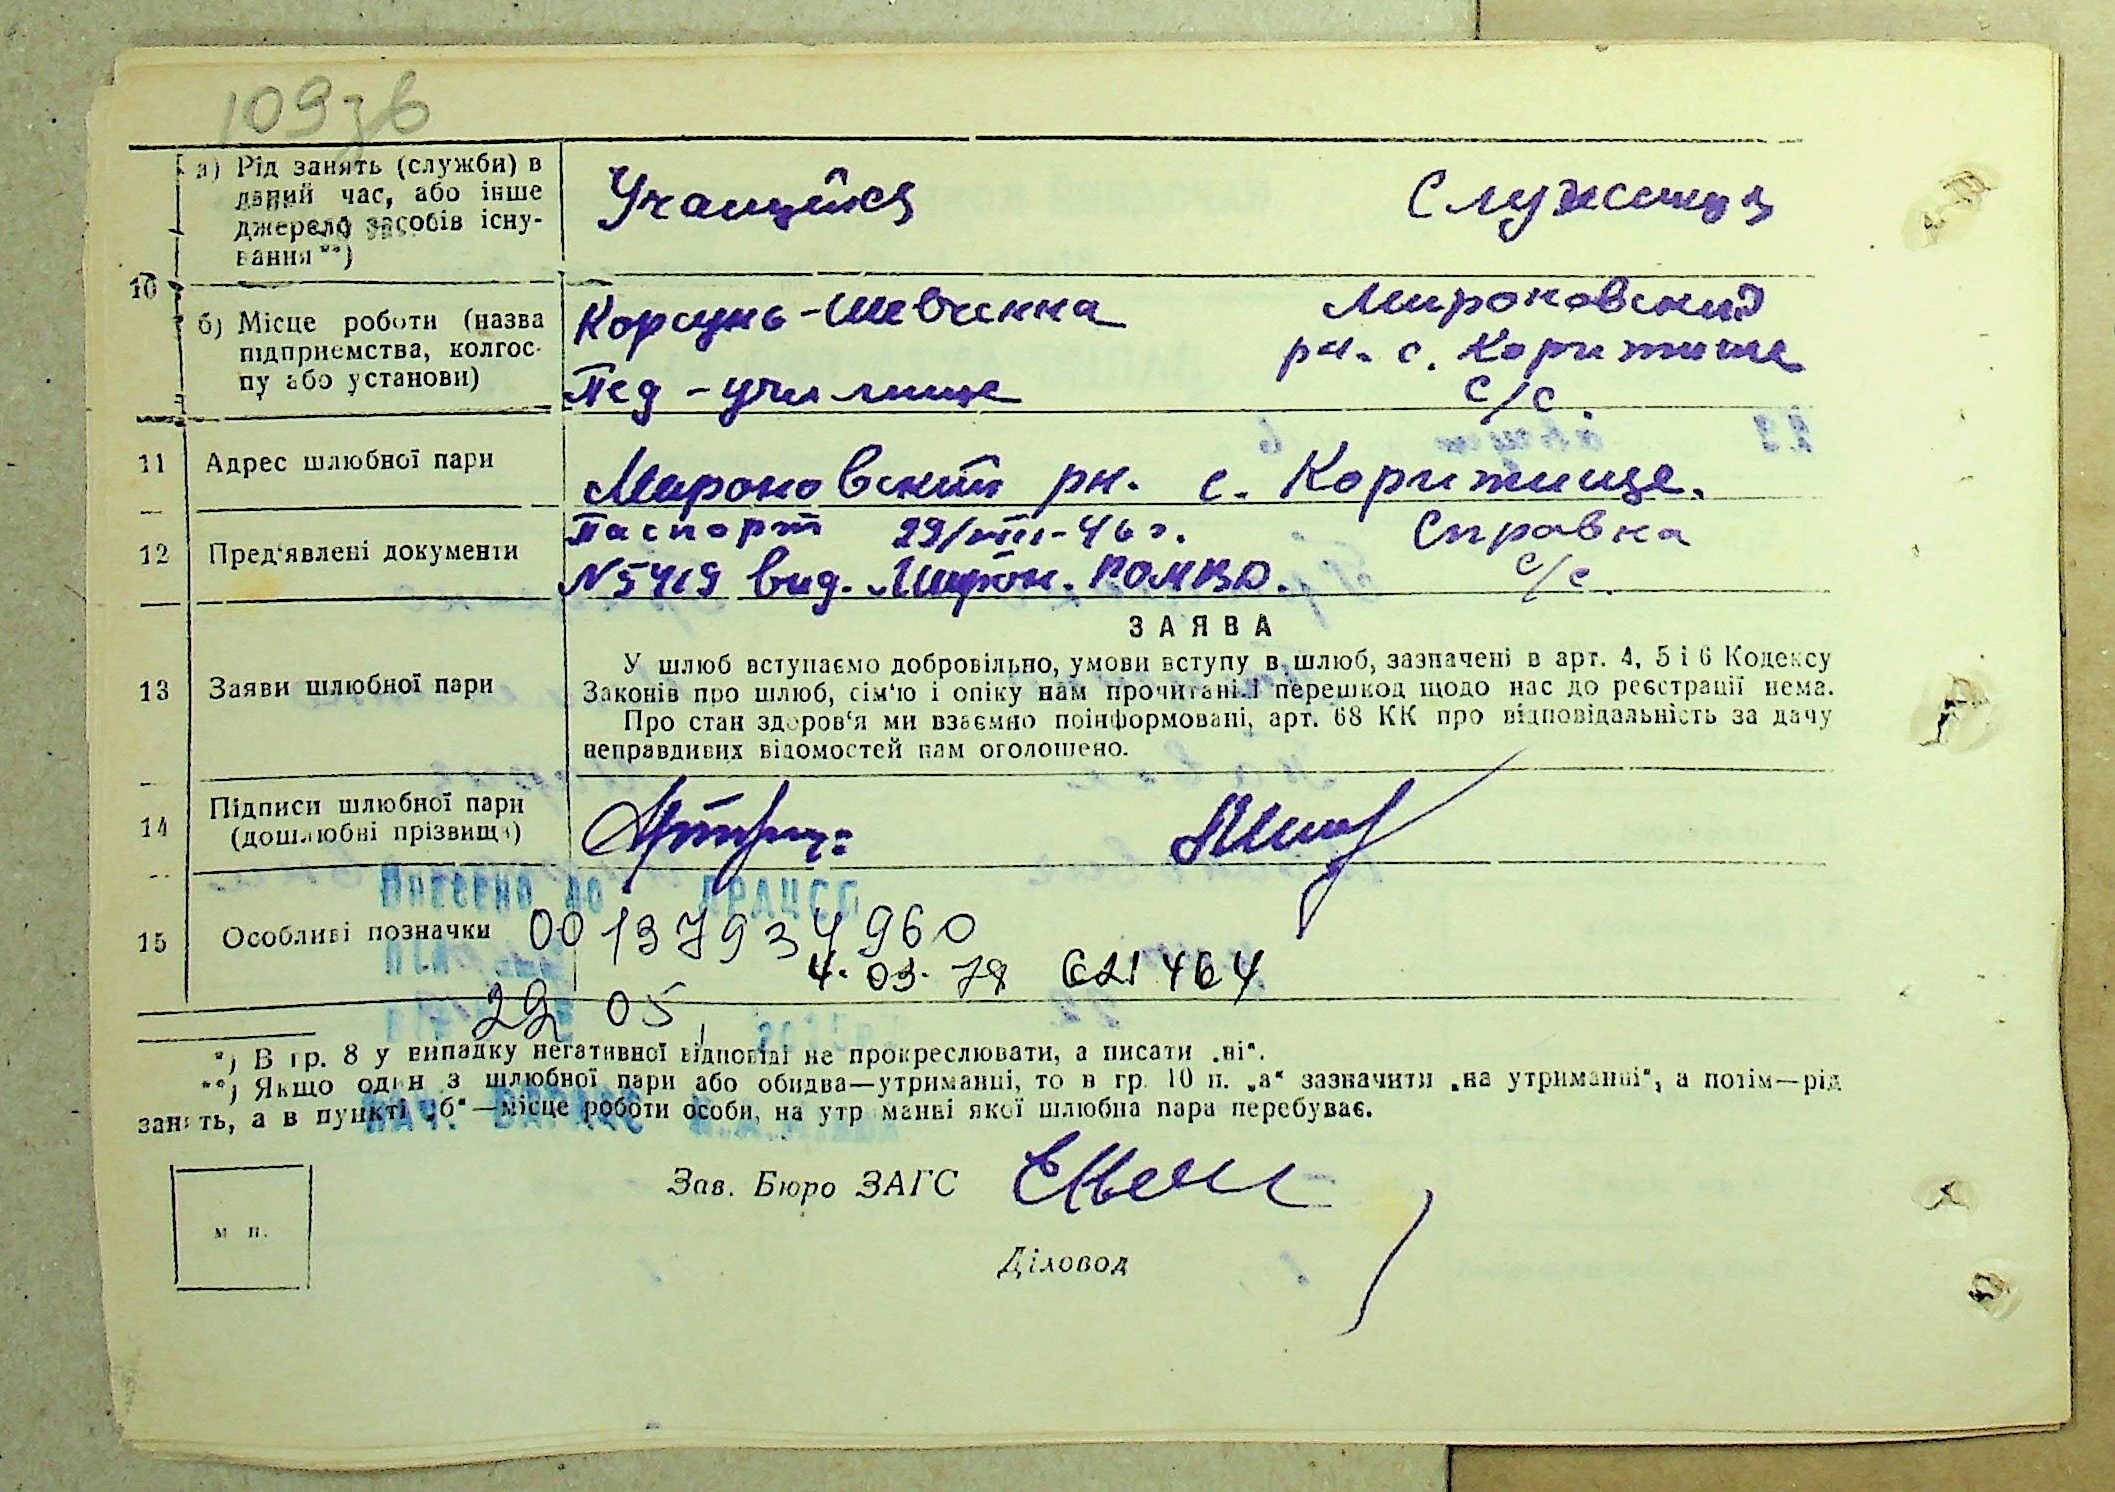 109зв
а) Рід занять (служби) в
даний час, або інше
джерело засобів існу-
вання**)
Учащийся
Служащая
10
б) Місце роботи (назва
підприємства, колгос-
пу або установи)
Корсунь-Шевченка
Пед-училище
Мироновский
рн. с. Коритище
с/с.
11
Адрес шлюбної пари
Мироновский рн. с. Коритище.
12
Пред'явлені документи
Паспорт 29/VIII-46 г.
N5419 вид. Мирон. РОМВД.
Справка
с/с.
ЗАЯВА
13
Заяви шлюбної пари
У шлюб вступаємо добровільно, умови вступу в шлюб, зазначені в арт. 4, 5 і 6 Кодексу
Законів про шлюб, сім'ю і опіку нам прочитані і перешкод щодо нас до реєстрації нема.
Про стан здоров'я ми взаємно поінформовані, арт. 68 КК про відповідальність за дачу
неправдивих відомостей нам оголошено.
14
Підписи шлюбної пари
(дошлюбні прізвища)
15
Особливі позначки
Внесено до ДРАЦСГ
00137934960
4. 03. 78 621464
22 05
*) В гр. 8 у випадку негативної відповіді не прокреслювати, а писати „ні".
**) Якщо один з шлюбної пари або обидва—утриманці, то в гр. 10 п. „а" зазначити „на утриманні", а потім—рід
занять, а в пункті „б"—місце роботи особи, на утриманні якої шлюбна пара перебуває.
Зав. Бюро ЗАГС
м п.
Діловод